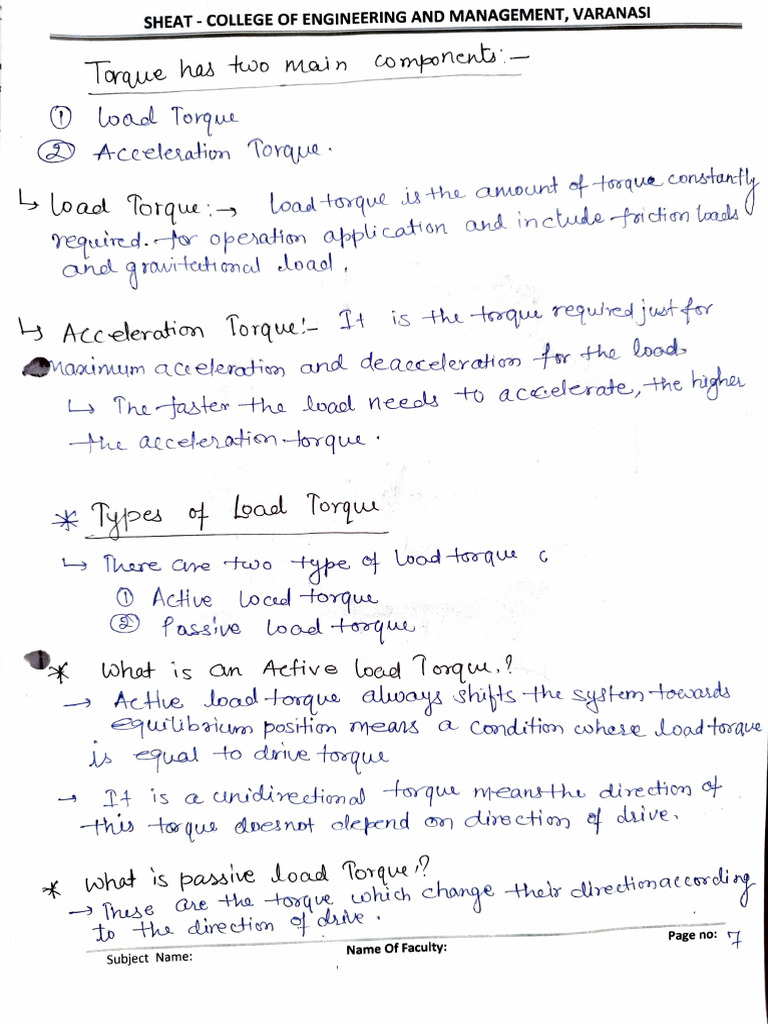 SHEAT - COLLEGE OF ENGINEERING AND MANAGEMENT, VARANASI
Torque has two main components:-
① Load Torque
② Acceleration Torque.
↳ Load Torque:→ Load torque is the amount of torque constantly
required. for operation application and include friction loads
and gravitational load.
↳ Acceleration Torque:- It is the torque required just for
maximum acceleration and deacceleration for the load.
↳ The faster the load needs to accelerate, the higher
the acceleration torque.
* Types of Load Torque
↳ There are two type of load torque
① Active load torque
② Passive load torque
* What is an Active load Torque.?
→ Active load torque always shifts the system towards
equilibrium position means a condition where load torque
is equal to drive torque
→ It is a unidirectional torque means the direction of
this torque doesnot depend on direction of drive.
* What is passive load Torque.?
→ These are the torque which change their direction according
to the direction of drive.
Subject Name: Name Of Faculty: Page no: 7